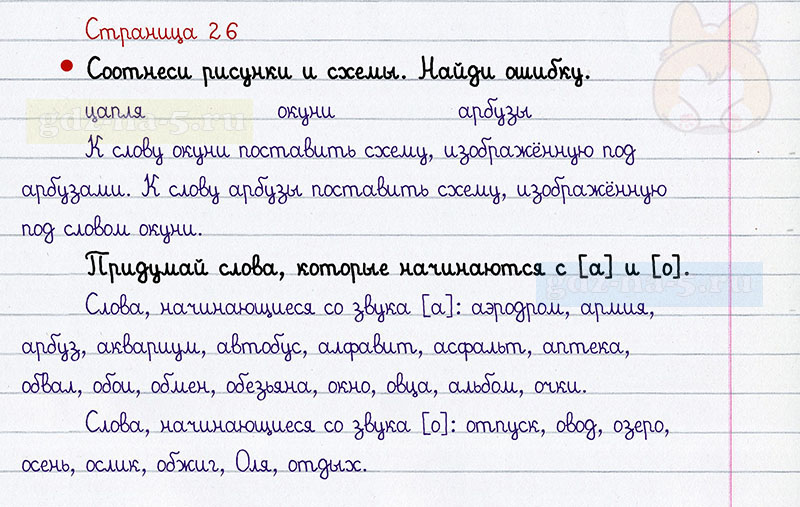 Страница 26
Соотнеси рисунки и схемы. Найди ошибку.
цапля окуни арбузы
К слову окуни поставить схему, изображённую под
арбузами. К слову арбузы поставить схему, изображённую
под словом окуни.
Придумай слова, которые начинаются с [а] и [о].
Слова, начинающиеся со звука [а]: аэродром, армия,
арбуз, аквариум, автобус, алфавит, асфальт, аптека,
обвал, обои, обмен, обезьяна, окно, овца, альбом, очки.
Слова, начинающиеся со звука [о]: отпуск, овод, озеро,
осень, ослик, обжиг, Оля, отдых.
gdz-na-5.ru
gdz-na-5.ru